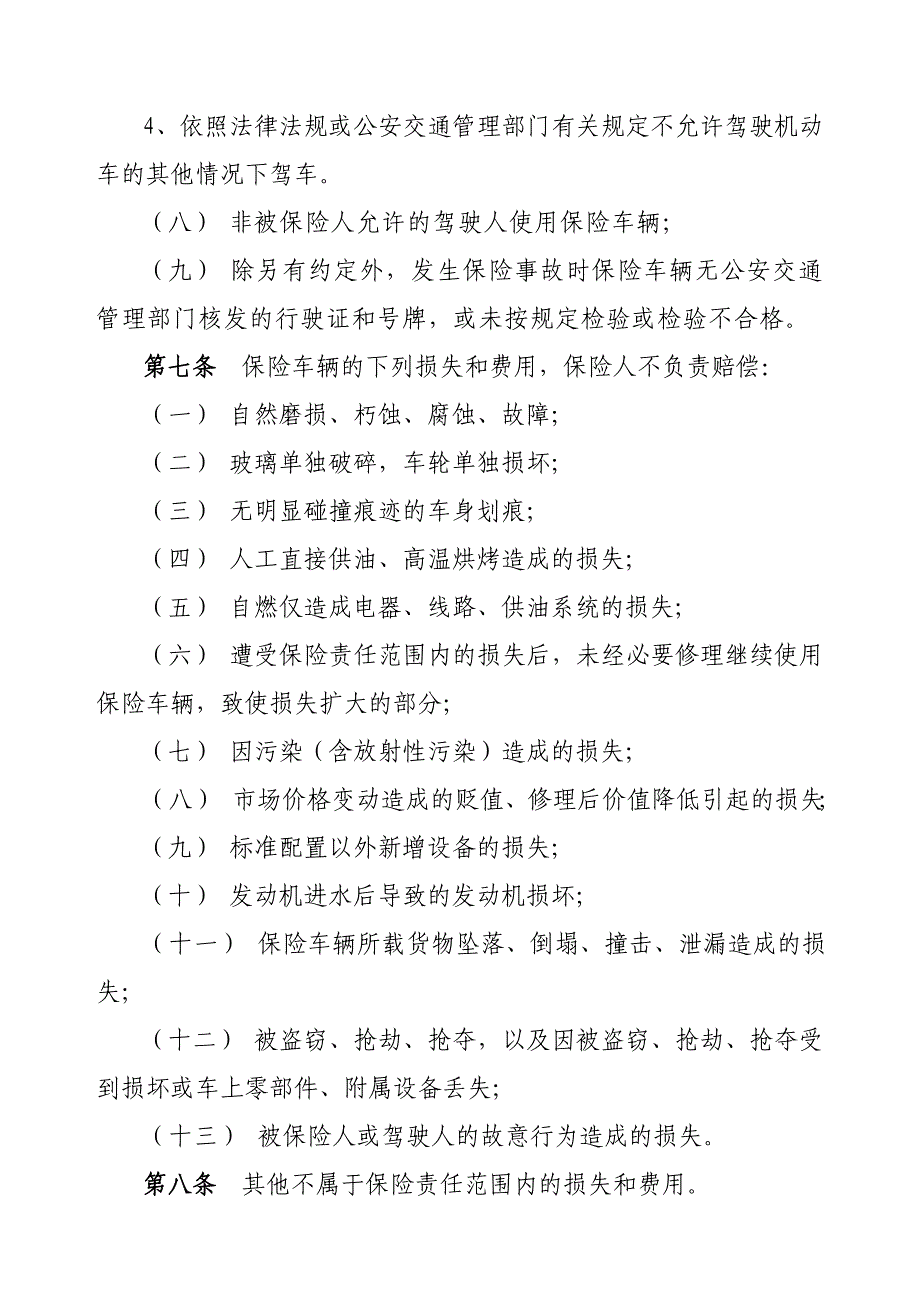 4、依照法律法规或公安交通管理部门有关规定不允许驾驶机动
车的其他情况下驾车。
（八） 非被保险人允许的驾驶人使用保险车辆；
（九） 除另有约定外，发生保险事故时保险车辆无公安交通
管理部门核发的行驶证和号牌，或未按规定检验或检验不合格。
第七条 保险车辆的下列损失和费用，保险人不负责赔偿：
（一） 自然磨损、朽蚀、腐蚀、故障；
（二） 玻璃单独破碎，车轮单独损坏；
（三） 无明显碰撞痕迹的车身划痕；
（四） 人工直接供油、高温烘烤造成的损失；
（五） 自燃仅造成电器、线路、供油系统的损失；
（六） 遭受保险责任范围内的损失后，未经必要修理继续使用
保险车辆，致使损失扩大的部分；
（七） 因污染（含放射性污染）造成的损失；
（八） 市场价格变动造成的贬值、修理后价值降低引起的损失；
（九） 标准配置以外新增设备的损失；
（十） 发动机进水后导致的发动机损坏；
（十一） 保险车辆所载货物坠落、倒塌、撞击、泄漏造成的损
失；
（十二） 被盗窃、抢劫、抢夺，以及因被盗窃、抢劫、抢夺受
到损坏或车上零部件、附属设备丢失；
（十三） 被保险人或驾驶人的故意行为造成的损失。
第八条 其他不属于保险责任范围内的损失和费用。